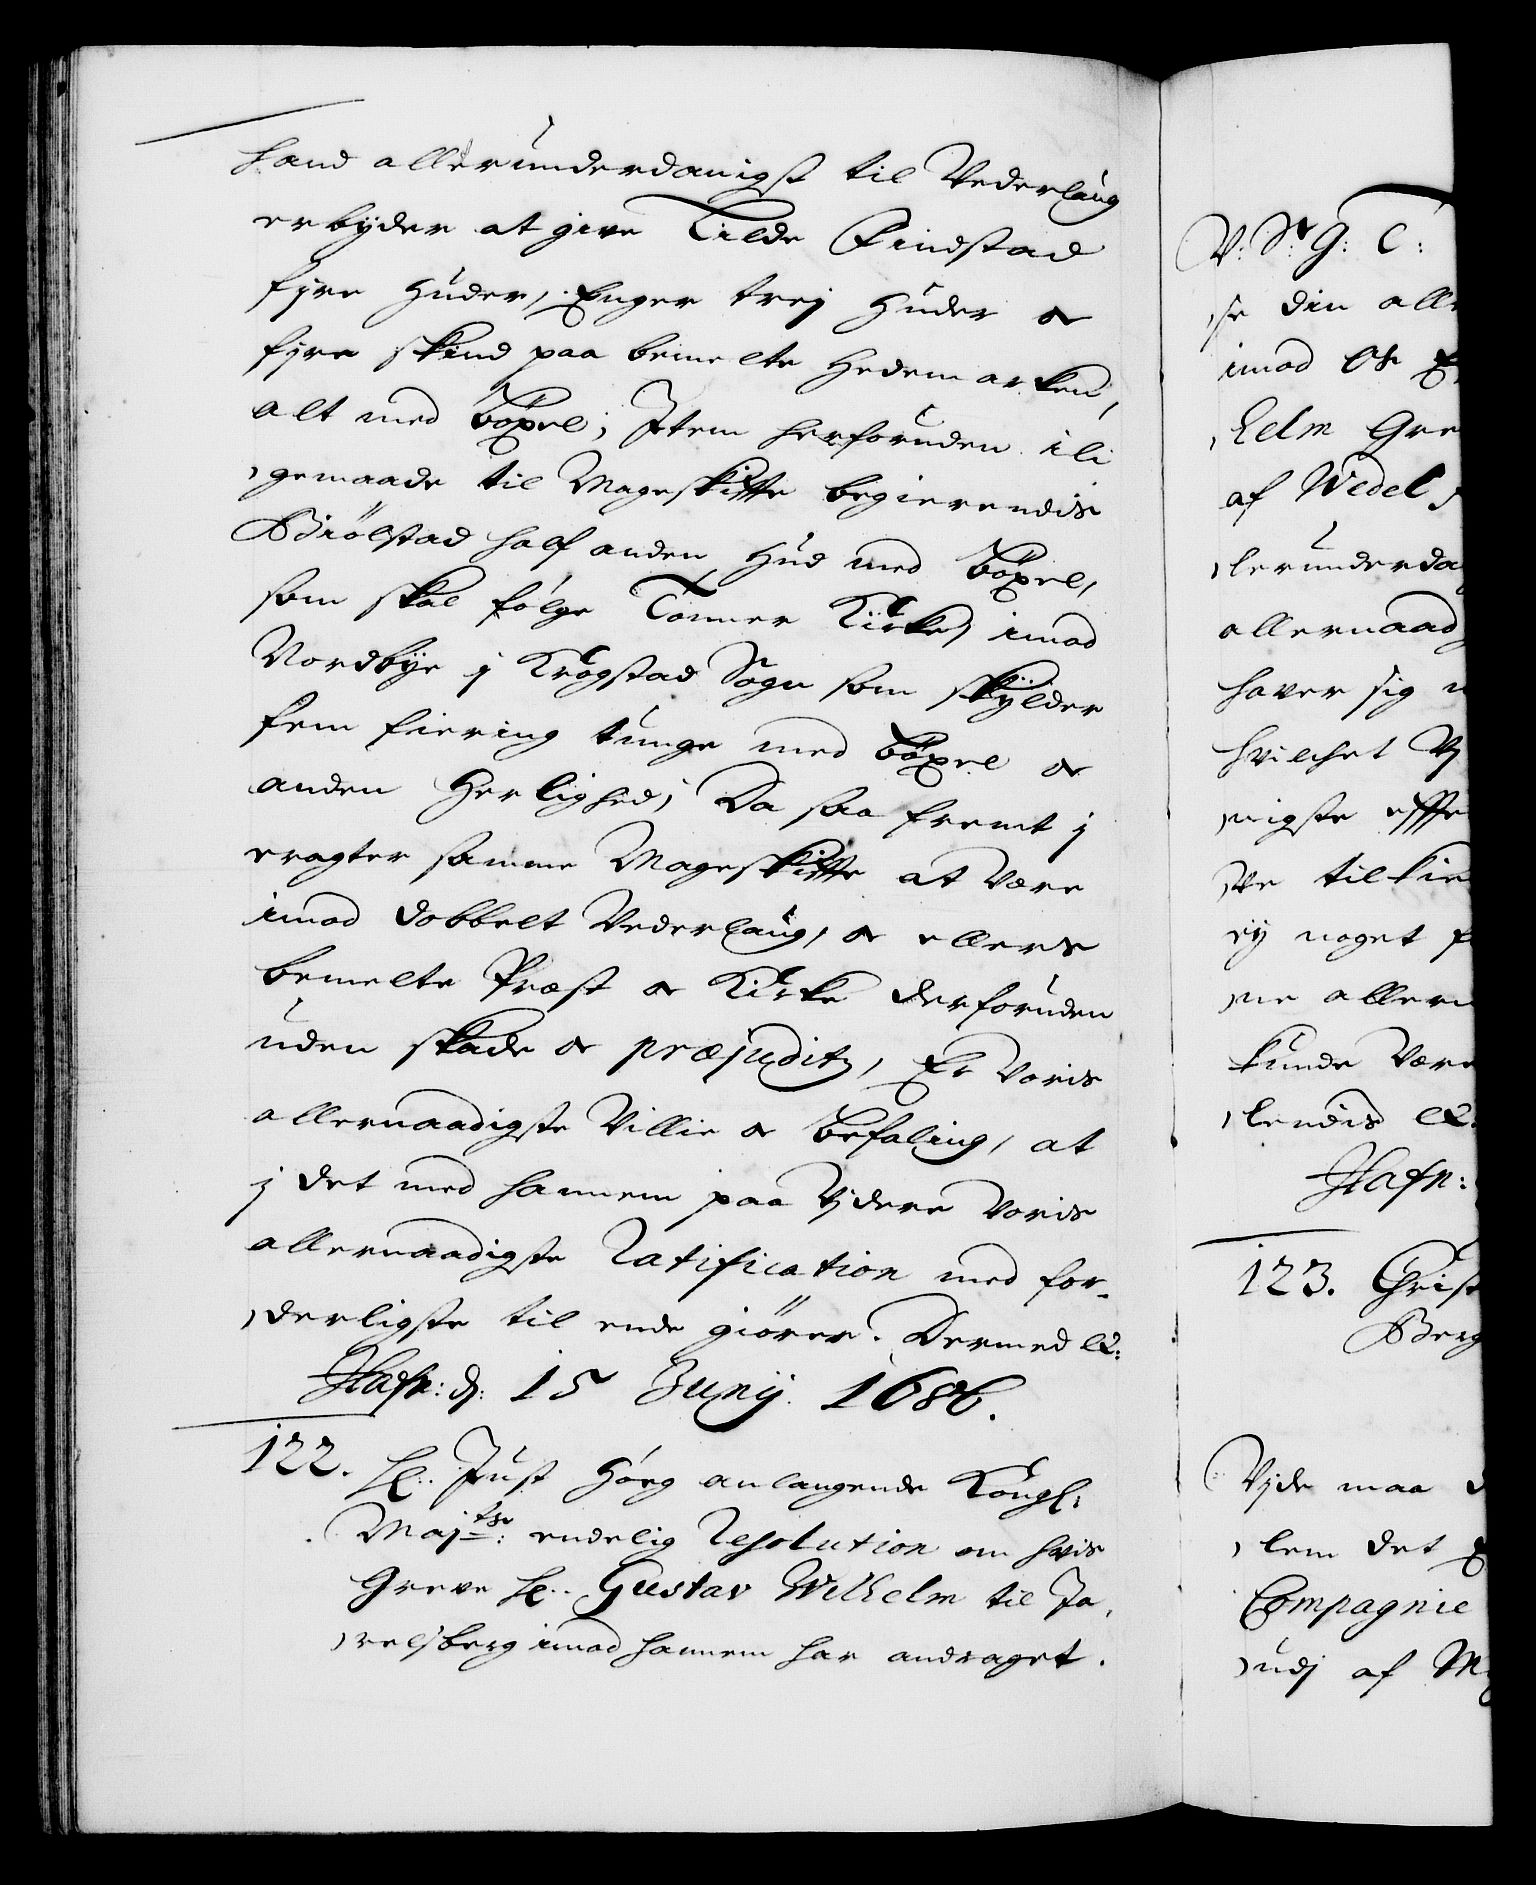 hand allerunderdanigst til Vederlaug
erbyder at give Tilde Findstad
fire Huder, Enger trej Huder oc
fire skind paa bemelte Hedemarken,
alt med böxel; Item herforuden i li
gemaade til Mageskiffte begierendis
Biölstad half anden Hud med böxel,
som skal følge Tomter Kirke, imod
Nordbye j Krogstad Sogn som skylder
fem fiering tunge med böxel oc
anden Herlighed; Da saa fremt j
eragter samme Mageskiffte at være
imod dobbelt Vederlaug, oc ellers
bemelte Præst oc Kirke derforuden
uden skade oc præjuditz, Er voris
allernaadigste Villie oc befaling, at
j det med hannem paa Vjdere voris
allernaadigste Ratification med for-
derligste til ende giører. Dermed etc:
Hafn: d: 15 Junij 1686.
122. Hr. Just Høeg anlangende Kongl:
Majts: endelig Resolution om hvis
Greve Hr. Gustav Wilhelm til Ja
relsberg imod hannem har andraget.
V: Sr G: C:
se din alle
imod Os
helm Gre
af Wedel
lerunderda
allernaad
haver sig
hvilchet Vj
nigste effte
ve tilkie
ej noget f
ne allern
kunde være
lendis etc.
Hafn:
123. Christ
Berg
Vjde maa
lem det
Compagnie
udj af M